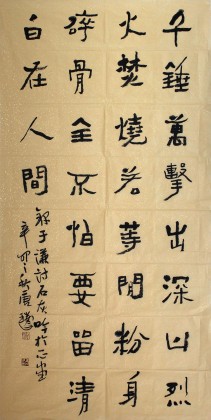 千錘萬擊出深山烈
火焚燒若等閒粉身
碎骨全不怕要留清
白在人間
錄于謙詩石灰吟於
辛卯之秋